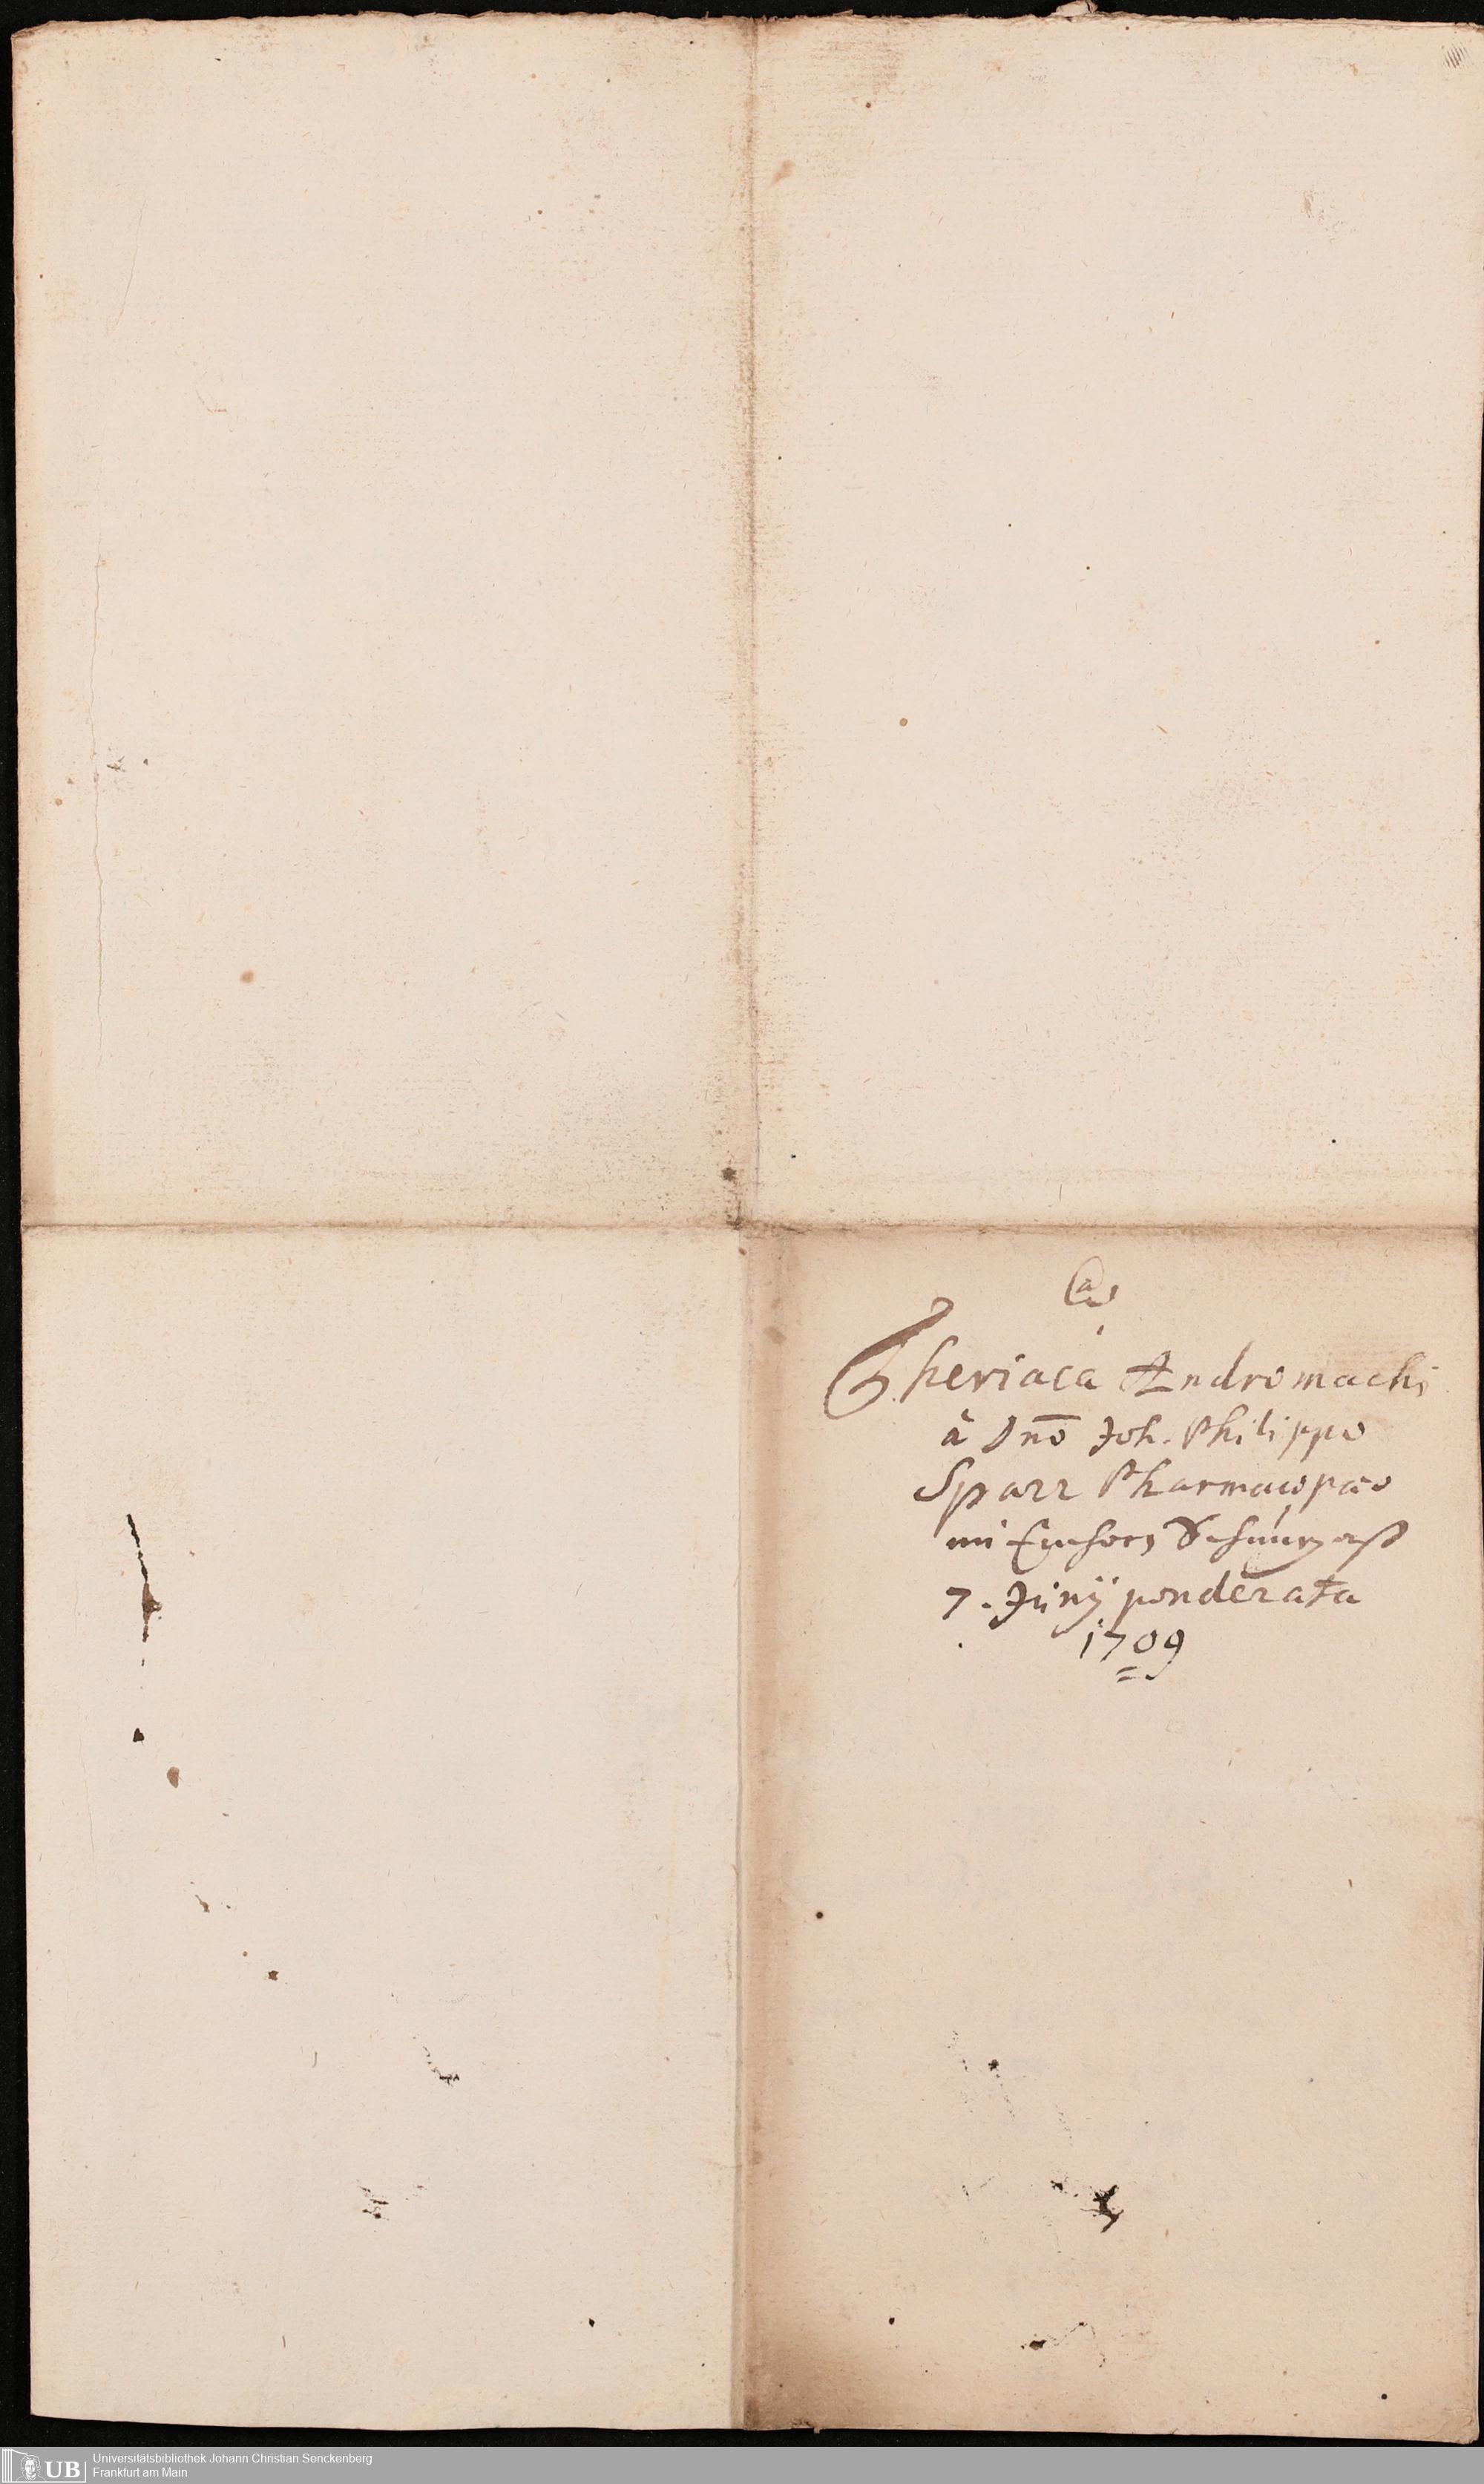 Theriaca Andromachi
â Dn̄o Joh. Philippo
Sparr Pharmacopœo
im Einhorn
7. Junij ponderata
1709
UB
Universitätsbibliothek Johann Christian Senckenberg
Frankfurt am Main